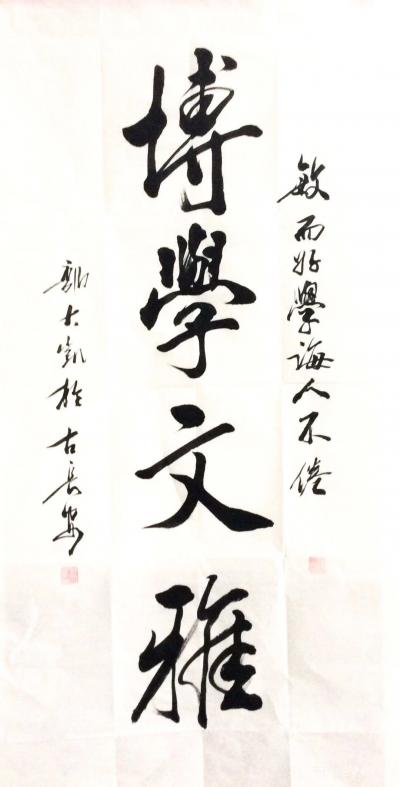 敏而好學誨人不倦
博學文雅
郭大凱於古長安